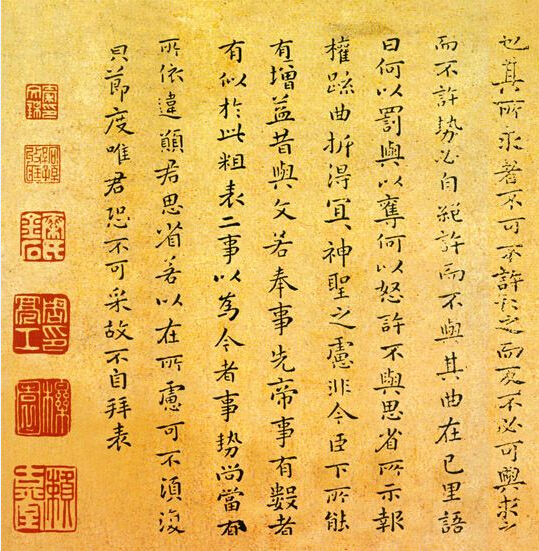 也其所求者不可不許〻之而反不必可與求之
而不許勢必自絕許而不與其曲在己里語
曰何以罰與以奪何以怒許不與思省所示報
權踈曲折得宜神聖之慮非今臣下所能
有增益昔與文若奉事先帝事有數者
有似於此粗表二事以為今者事勢尚當有
所依違願君思省若以在所慮可不須復
貝節度唯君恐不可采故不自拜表